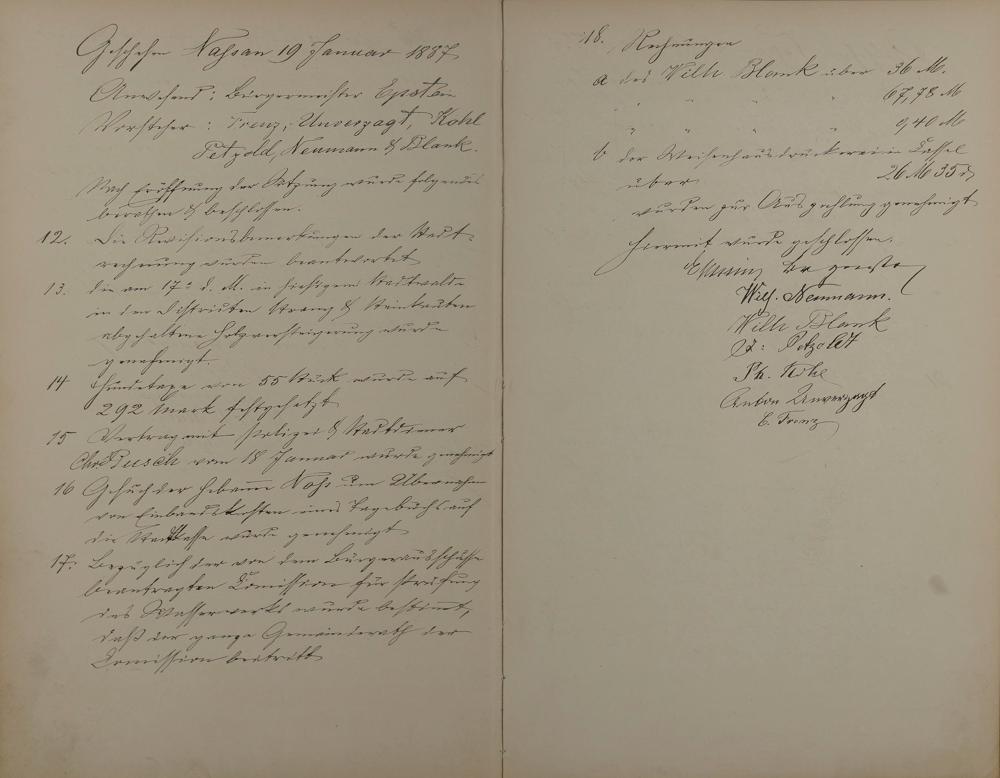 Geschehen Nassau 19 Januar 1887
Anwesend: Bürgermeister Epstein
Vorsteher: Trenz, Unverzagt, Kohl
Petzold, Neumann & Blank.
Nach Eröffnung der Sitzung wurde folgendes
berathen & beschlossen.
12. Die Revisionsbemerkungen der Stadt-
rechnung wurden beantwortet
13. Die am 17t d. M. in hiesigem Stadtwalde
in den Distrikten & Steinkauten
abgehaltene Holzversteigerung wurde
genehmigt.
14 Hundetaxe von 55 Stück wurde auf
292 Mark festgesetzt
15 Vertrag mit Polizei & Stadtdiener
Chr Busch vom 18 Januar wurde genehmigt
16 Gesuch der Hebamme um Übernahme
von Einbandskosten eines Tagebuchs auf
die Stadtkasse wurde genehmigt
17. Bezüglich der von dem Bürgerausschusse
beantragten Comission für Prüfung
des Wasserwerks wurde bestimmt,
daß der ganze Gemeinderath der
Comission beitritt
18. Rechnungen
a des Wilh Blank über 36 M.
" " " " 67,78 M
" " " " 9,40 M
b der Waisenhausdruckerei in Cassel
über 26 M 35 d
wurden zur Auszahlung genehmigt
Hiermit wurde geschlossen.
Wilh. Neumann.
Wilh Blank
Petzoldt
Ph. Kohl
Anton Unverzagt
E. Trenz